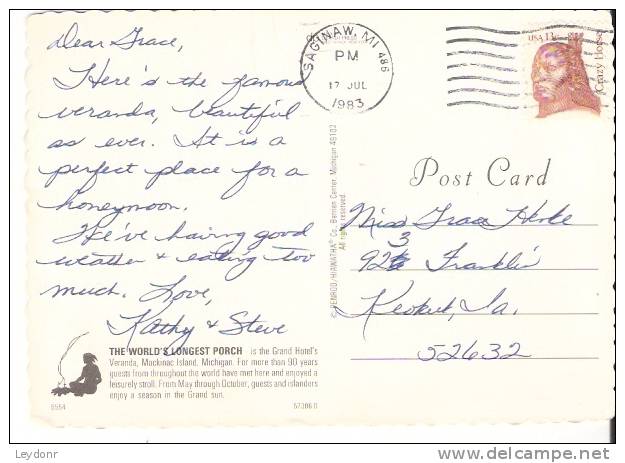 Dear Grace,
Here's the famous
veranda, beautiful
as ever. It is a
perfect place for a
honeymoon.
We've having good
weather & eating too
much. Love,
Kathy & Steve
THE WORLD'S LONGEST PORCH is the Grand Hotel's
Veranda, Mackinac Island, Michigan. For more than 90 years
guests from throughout the world have met here and enjoyed a
leisurely stroll. From May through October, guests and islanders
enjoy a season in the Grand sun.
57306
© PENROD/HIAWATHA® Co. Berrien Center, Michigan 49102
All rights reserved.
SAGINAW, MI 486
PM
17 JUL
1983
USA 13c
Crazy Horse
Post Card
Miss Grace
3
Franklin
Keokuk, Ia.
52632
Leydonr
www.delcampe.net